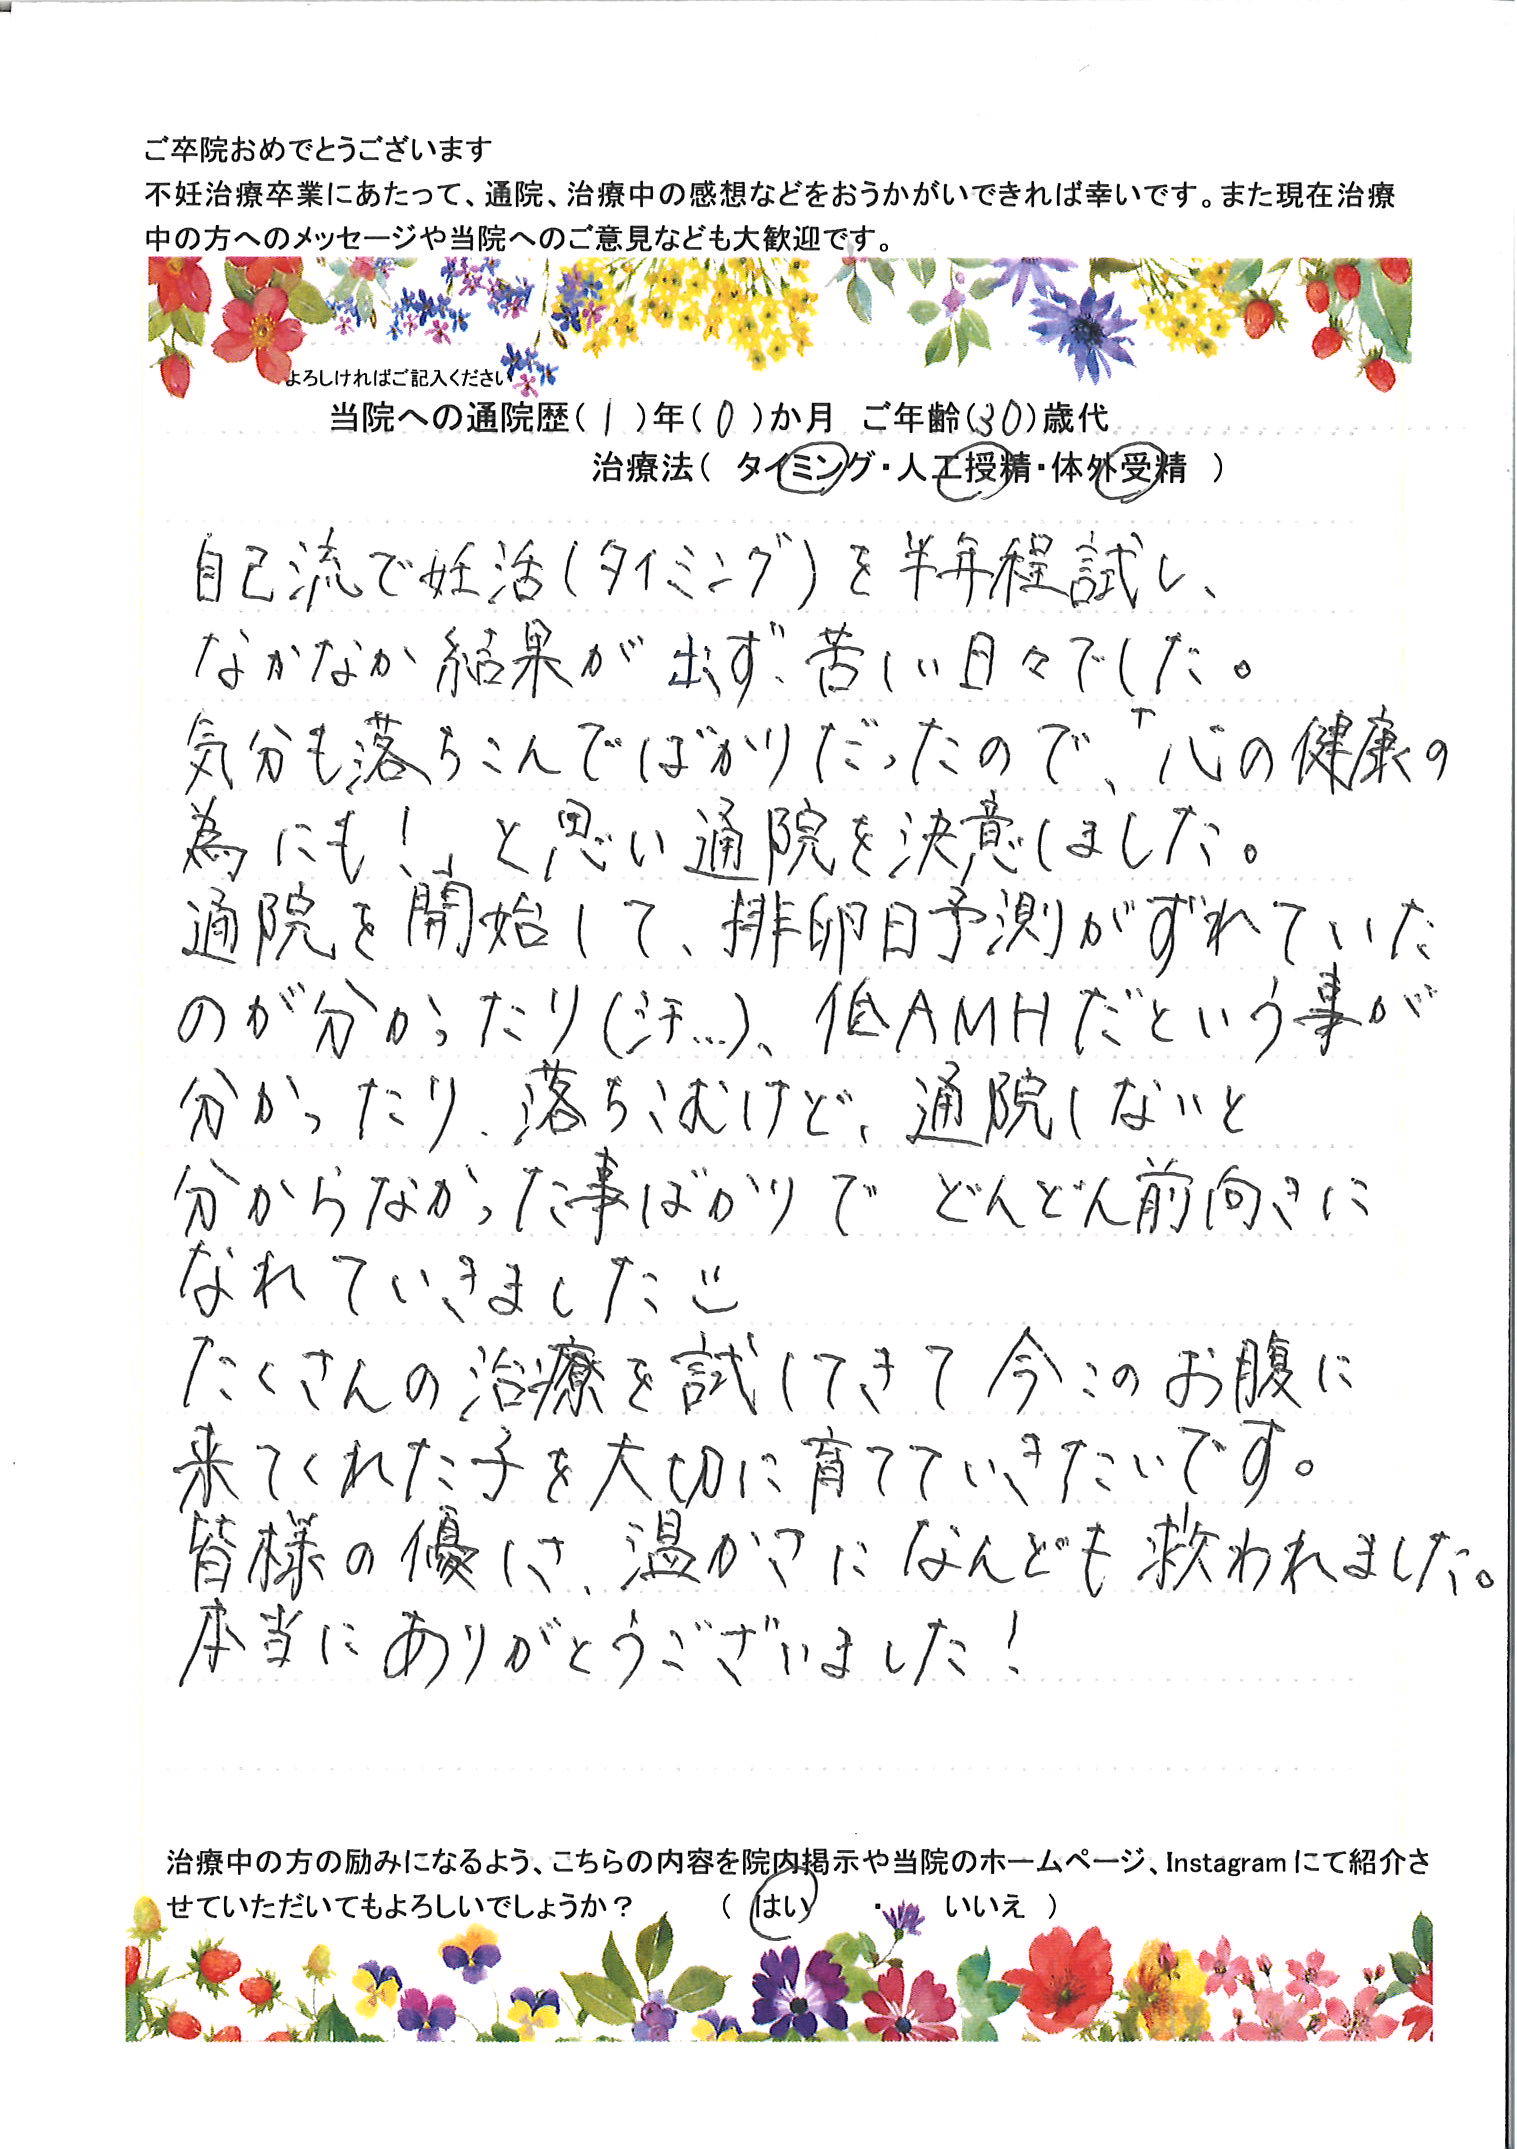 ご卒院おめでとうございます
不妊治療卒業にあたって、通院、治療中の感想などをおうかがいできれば幸いです。また現在治療
中の方へのメッセージや当院へのご意見なども大歓迎です。
よろしければご記入ください
当院への通院歴(1)年(0)か月 ご年齢(30)歳代
治療法( タイミング・人工授精・体外受精 )
自己流で妊活(タイミング)を半年程試し、
なかなか結果が出ず、苦しい日々でした。
気分も落ちこんでばかりだったので、「心の健康の
為にも!」と思い通院を決意しました。
通院を開始して、排卵日予測がずれていた
のが分かったり(汗…)、低AMHだという事が
分かったり、落ちこむけど、通院しないと
分からなかった事ばかりで どんどん前向きに
なれていきました
たくさんの治療を試してきて今このお腹に
来てくれた子を大切に育てていきたいです。
皆様の優しさ、温かさになんども救われました。
本当にありがとうございました!
治療中の方の励みになるよう、こちらの内容を院内掲示や当院のホームページ、Instagramにて紹介さ
せていただいてもよろしいでしょうか? ( はい ・ いいえ )